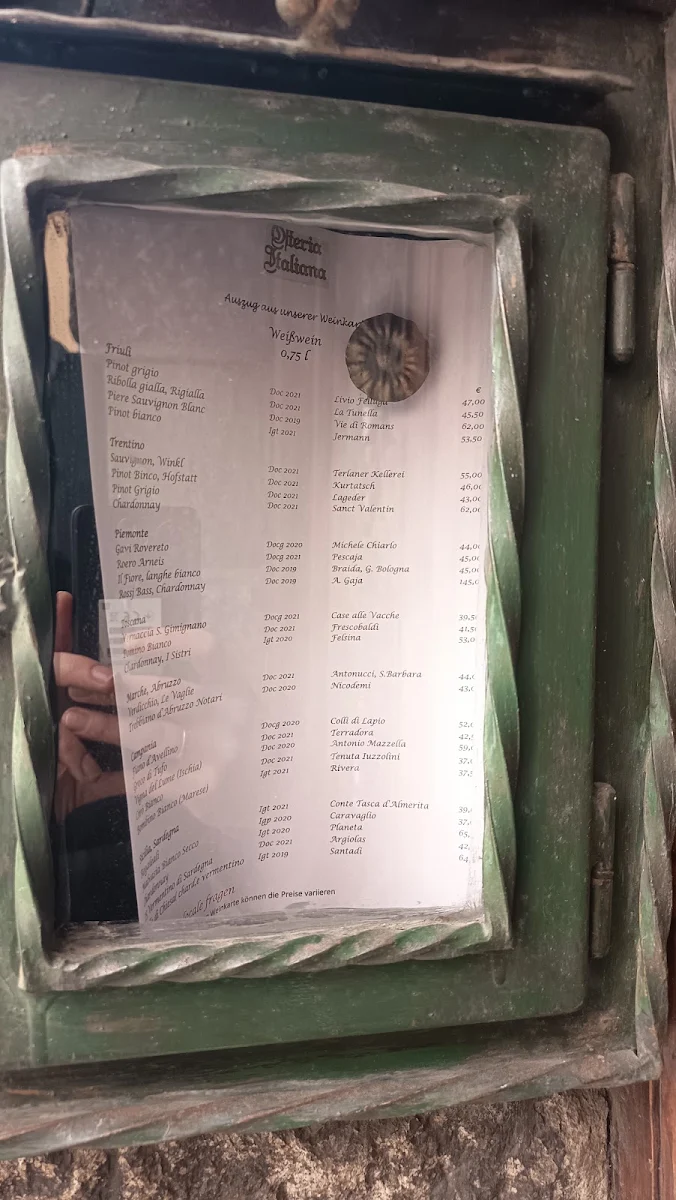 Osteria
Italiana
Auszug aus unserer Weinkar
Weißwein
0,75 l
€
Friuli
Pinot grigio Doc 2021 Livio Felluga 47,00
Ribolla gialla, Rigialla Doc 2021 La Tunella 45,50
Piere Sauvignon Blanc Doc 2019 Vie di Romans 62,00
Pinot bianco Igt 2021 Jermann 53,50
Trentino
Sauvignon, Winkl Doc 2021 Terlaner Kellerei 55,00
Pinot Binco, Hofstatt Doc 2021 Kurtatsch 46,0
Pinot Grigio Doc 2021 Lageder 43,0
Chardonnay Doc 2021 Sanct Valentin 62,0
Piemonte
Gavi Rovereto Docg 2020 Michele Chiarlo 44,0
Roero Arneis Docg 2021 Pescaja 45,0
Il Fiore, langhe bianco Doc 2019 Braida, G. Bologna 45,0
Rossj Bass, Chardonnay Doc 2019 A. Gaja 145,0
Toscana
S. Gimignano Docg 2021 Case alle Vacche 39,5
Bianco Doc 2021 Frescobaldi 41,5
Chardonnay, I Sistri Igt 2020 Felsina 53,0
Marche, Abruzzo
Verdicchio, Le Vaglie Doc 2021 Antonucci, S.Barbara 44,
Trebbiano d'Abruzzo Notari Doc 2020 Nicodemi 43,
Campania
Fiano d'Avellino Docg 2020 Colli di Lapio 52,
Greco di Tufo Doc 2021 Terradora 42,
Vigna del Lume (Ischia) Doc 2020 Antonio Mazzella 59,
Ciro Bianco Doc 2021 Tenuta Iuzzolini 37,
Bombino Bianco (Marese) Igt 2021 Rivera 37,
Sicilia, Sardegna
Igt 2021 Conte Tasca d'Almerita 39,
Bianco Secco Igp 2020 Caravaglio 37,
Chardonnay Igt 2020 Planeta 65,
Vermentino di Sardegna Doc 2021 Argiolas 42,
vermentino Igt 2019 Santadi 64,
fragen
Weinkarte können die Preise variieren